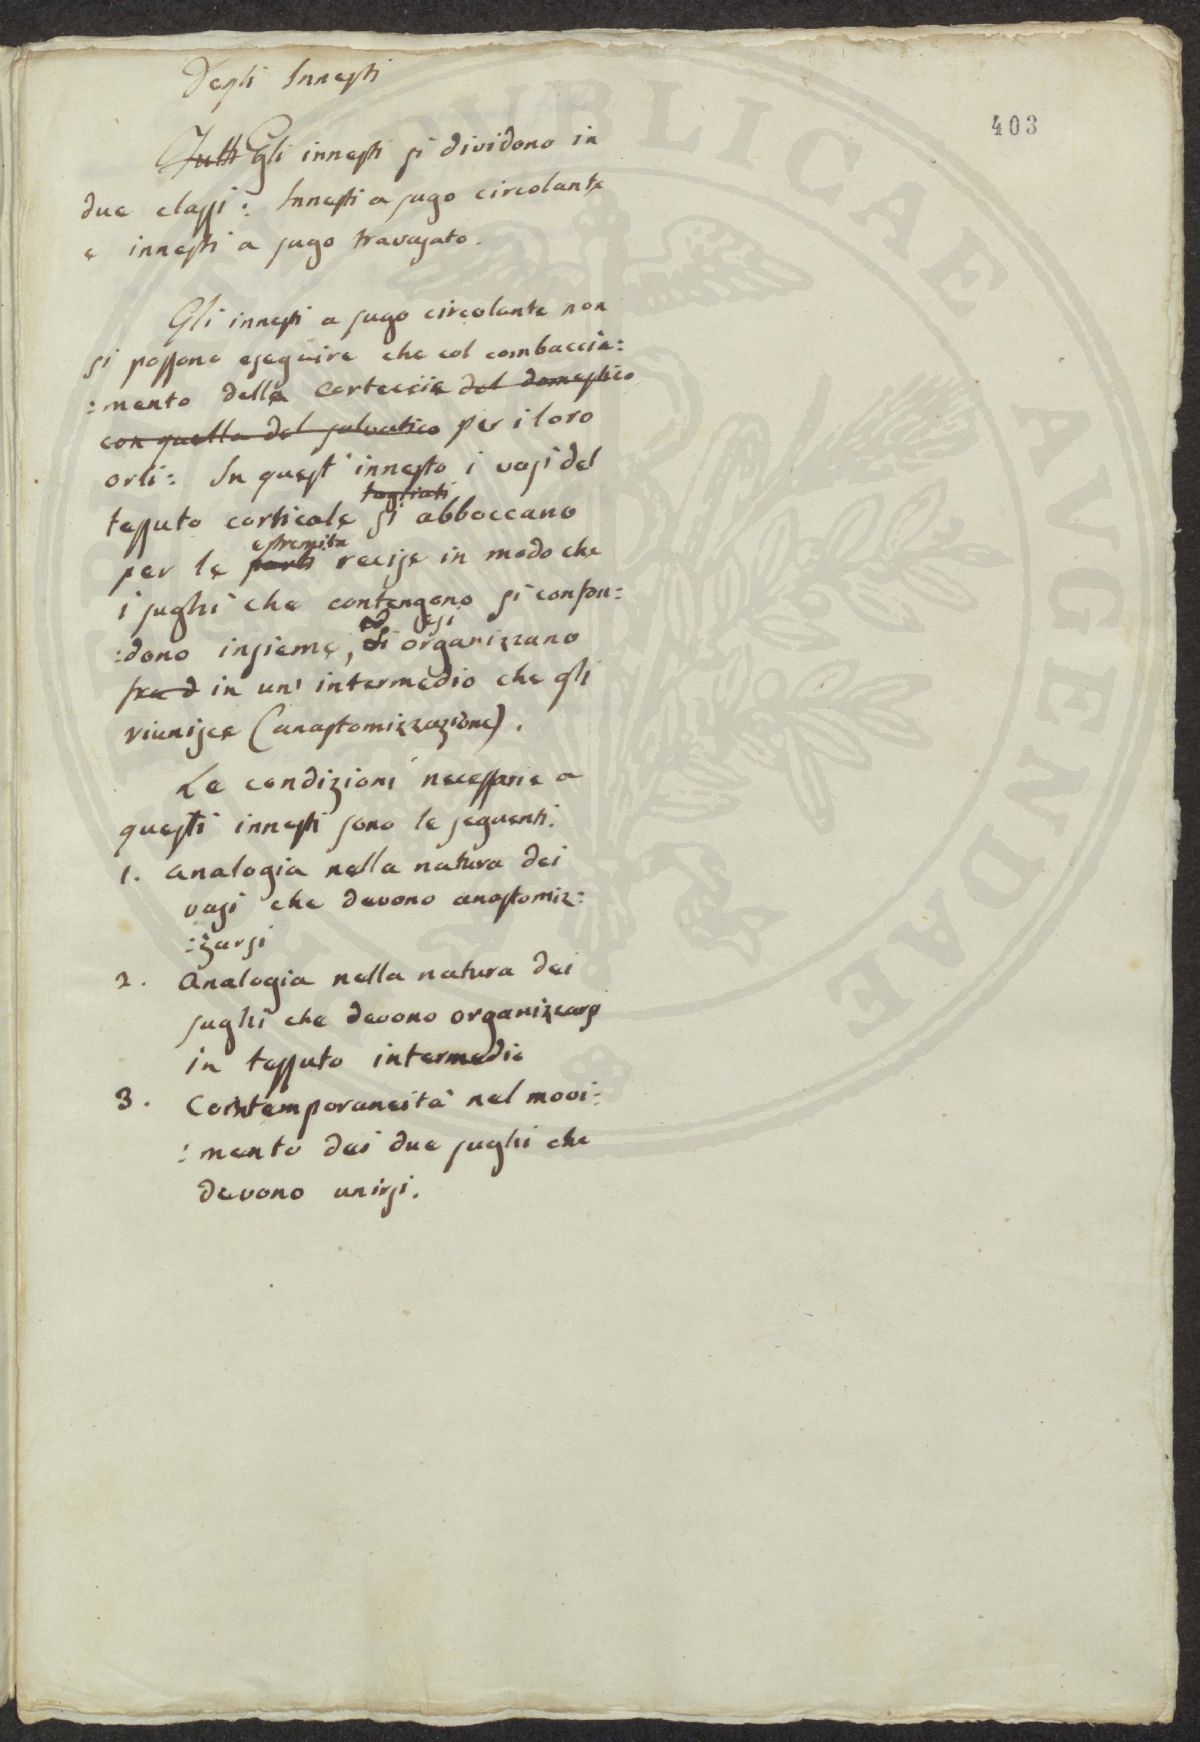 403
Degli Innesti
Tutti Gli innesti si dividono in
due classi: Innesti a sugo circolante
e innesti a sugo travasato.
Gli innesti a sugo circolante non
si possono eseguire che col combaccia:
:mento delle corteccie del domestico
con quella del salvatico per i loro
orli: In quest' innesto i vasi del
tagliati
tessuto corticale si abboccano
estremita
per le parti recise in modo che
i sughi che contengono si confon:
ed si
:dono insieme, si organizzano
in un' intermedio che gli
riunisce (anastomizzazione).
Le condizioni necessarie a
questi innesti sono le seguenti.
1. Analogia nella natura dei
vasi che devono anastomiz:
:zarsi
2. Analogia nella natura dei
sughi che devono organizzarsi
in tessuto intermedio
3. Contemporaneità nel movi:
:mento dei due sughi che
devono unirsi.
PUBLICAE AUGENDAE